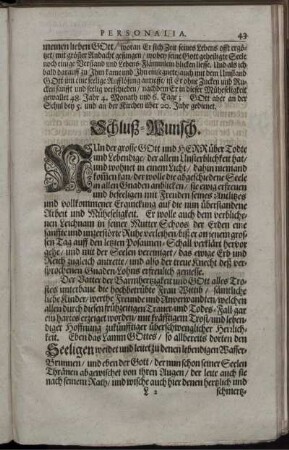 PERSONALIA. 43
meinen lieben GOtt / woran Er sich Zeit seines Lebens offt ergö-
tzet / mit grosser Andacht gesungen / wobey seine Gott geheiligte Seele
noch einige Verstand und Lebens-Flämmlein blicken liesse. Und als ich
bald darauff zu Ihm kam und Ihn einsegnete / auch mit dem Umstand
GOtt um eine seelige Aufflösung anruffte / ist Er ohne Zucken und Ru-
cken sanfft und seelig verschieden / nachdem Er in dieser Mühseeligkeit
gewallet 48. Jahr 4. Monath und 6. Tage; GOtt aber an der
Schul bey 5. und an der Kirchen über 20. Jahr gedienet.
Schluß-Wunsch.
NUn der grosse GOtt und HERR über Todte
und Lebendige / der allein Unsterblichkeit hat /
und wohnet in einem Licht / dahin niemand
kommen kan / der wolle die abgeschiedene Seele
in allen Gnaden anblicken / sie ewig erfreuen
und beseeligen mit Freuden seines Antlitzes
und vollkommener Erquickung auf die nun überstandene
Arbeit und Müheseligkeit. Er wolle auch dem verbliche-
nen Leichnam in seiner Mutter Schoos der Erden eine
sanffte und ungestörte Ruhe verleihen / biß er an jenem gros-
sen Tag auf den letzten Posaunen-Schall verklärt hervor
gehe / und mit der Seelen vereiniget / das ewige Erb und
Reich zugleich antrette / und also der treue Knecht deß ver-
sprochenen Gnaden-Lohns erfreulich geniesse.
Der Vatter der Barmhertzigkeit und GOtt alles Tro-
stes unterbaue die hochbetrübte Frau Wittib / sämtliche
liebe Kinder / werthe Freunde und Anverwandten / welchen
allen durch diesen frühzeitigen Trauer- und Todes-Fall gar
ein hartes erzeiget worden / mit kräfftigem Trost / und leben-
diger Hoffnung zukünfftiger überschwenglicher Herrlich-
keit. Eben das Lamm GOttes / so allbereits dorten den
Seeligen weidet und leitet zu denen lebendigen Wasser-
Brunnen / und eben der Gott / der nun schon seiner Seelen
Thränen abgewischet von ihren Augen / der leite auch sie
nach seinem Rath / und wische auch hier denen hertzlich und
L 2 schmertz-